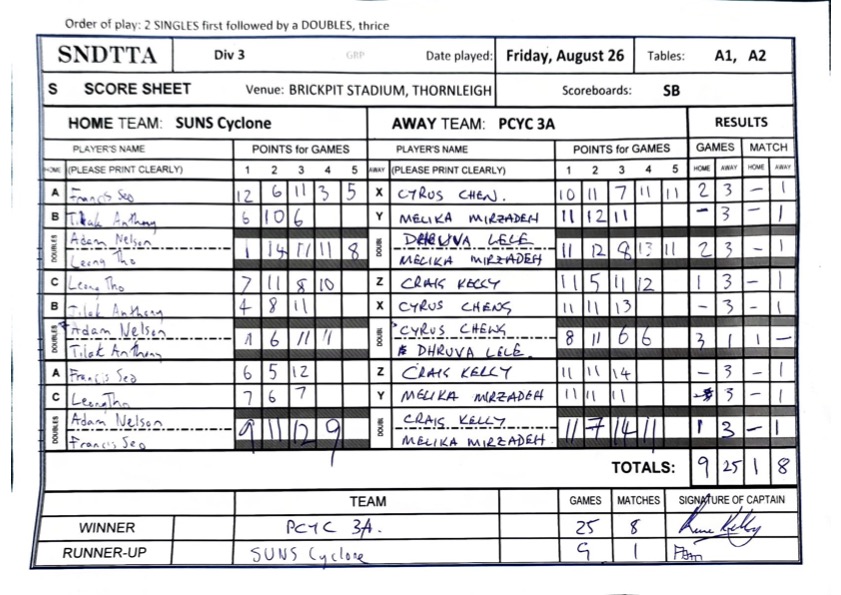 Order of play: 2 SINGLES first followed by a DOUBLES, thrice
SNDTTA Div 3 GRP Date played: Friday, August 26 Tables: A1, A2
S SCORE SHEET Venue: BRICKPIT STADIUM, THORNLEIGH Scoreboards: SB
HOME TEAM: SUNS Cyclone AWAY TEAM: PCYC 3A RESULTS
PLAYER'S NAME POINTS for GAMES PLAYER'S NAME POINTS for GAMES GAMES MATCH
HOME (PLEASE PRINT CLEARLY) 1 2 3 4 5 AWAY (PLEASE PRINT CLEARLY) 1 2 3 4 5 HOME AWAY HOME AWAY
A Francis Seo 12 6 11 3 5 X CYRUS CHEN. 10 11 7 11 11 2 3 – 1
B Tilak Anthony 6 10 6 Y MELIKA MIRZADEH 11 12 11 – 3 – 1
DOUBLES Adam Nelson 1 14 11 11 8 DOUBL DHRUVA LELE 11 12 8 13 11 2 3 – 1
Leong Tho MELIKA MIRZADEH
C Leong Tho 7 11 8 10 Z CRAIG KELLY 11 5 11 12 1 3 – 1
B Tilak Anthony 4 8 11 X CYRUS CHENG 11 11 13 – 3 – 1
DOUBLES Adam Nelson 11 6 11 11 DOUBL CYRUS CHENG 8 11 6 6 3 1 1 –
Tilak Anthony DHRUVA LELE
A Francis Seo 6 5 12 Z CRAIG KELLY 11 11 14 – 3 – 1
C Leong Tho 7 6 7 Y MELIKA MIRZADEH 11 11 11 3 – 1
DOUBLES Adam Nelson 9 11 12 9 DOUBL CRAIG KELLY 11 7 14 11 1 3 – 1
Francis Seo MELIKA MIRZADEH
TOTALS: 9 25 1 8
TEAM GAMES MATCHES SIGNATURE OF CAPTAIN
WINNER PCYC 3A. 25 8
RUNNER-UP SUNS Cyclone 9 1